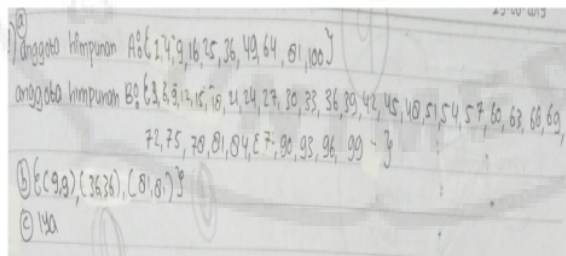 ⓐ
anggota himpunan A : { 1,4,9,16,25,36,49,64,81,100}
anggota himpunan B : {3,6,9,12,15,18,21,24,27,30,33,36,39,42,45,48,51,54,57,60,63,66,69,
72,75,78,81,84,87,90,93,96,99 }
ⓑ {(9,9),(36,36),(81,81)}
ⓒ iya